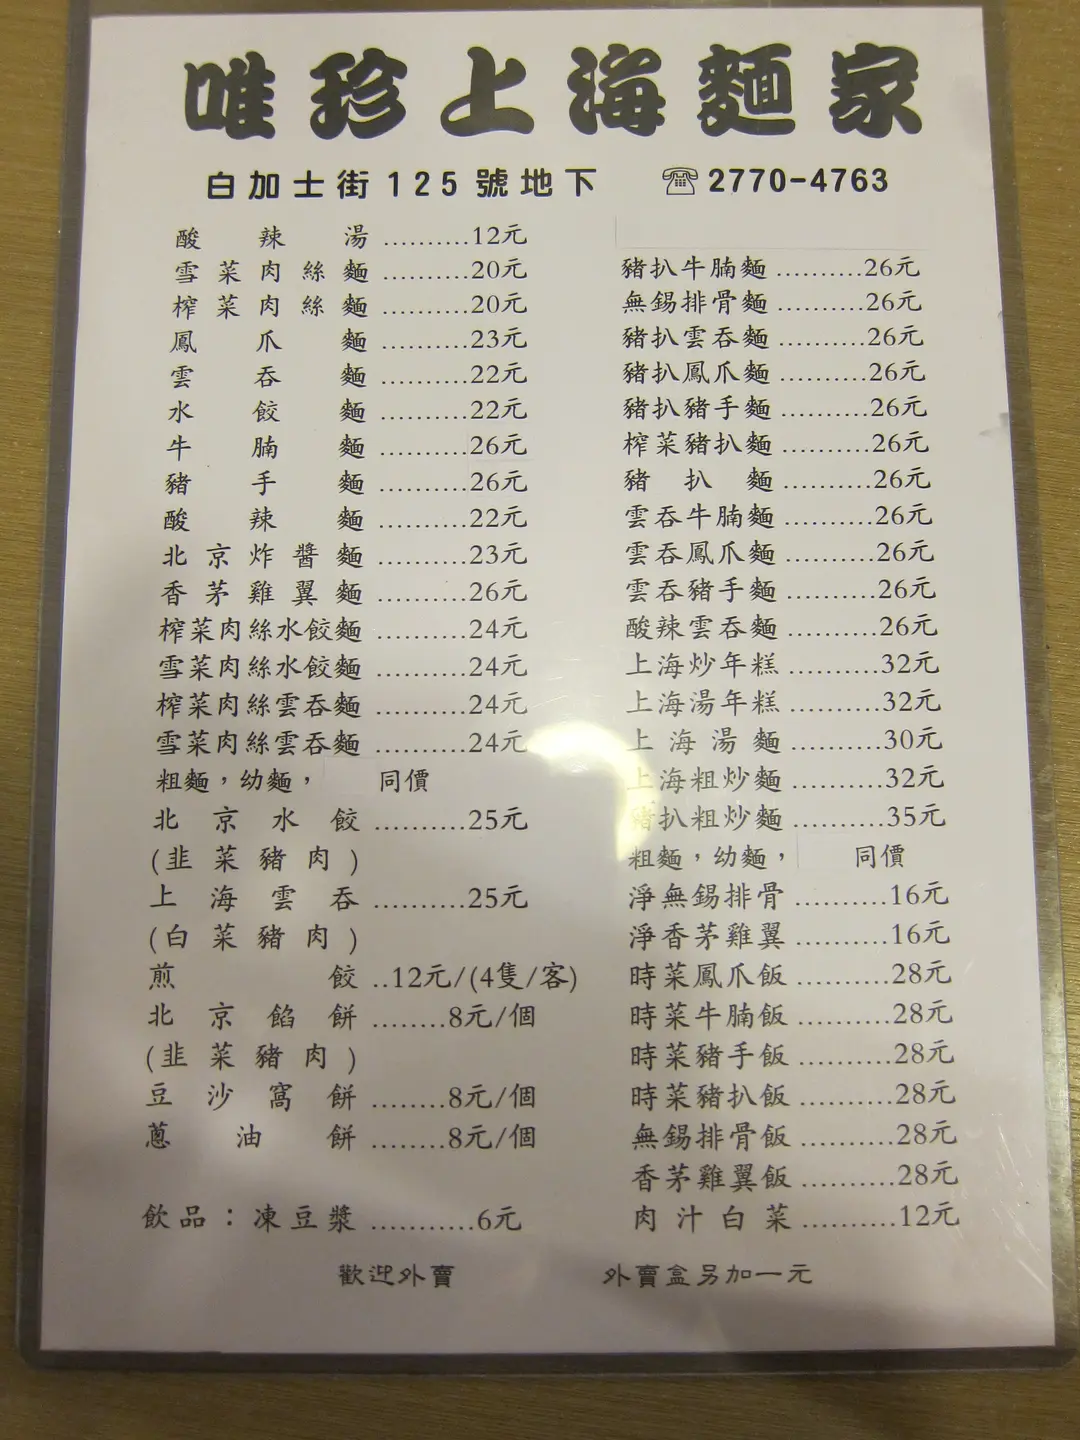 唯珍上海麵家
白加士街125號地下 ☏2770-4763
酸辣湯..........12元
雪菜肉絲麵..........20元
榨菜肉絲麵..........20元
鳳爪麵..........23元
雲吞麵..........22元
水餃麵..........22元
牛腩麵..........26元
豬手麵..........26元
酸辣麵..........22元
北京炸醬麵..........23元
香茅雞翼麵..........26元
榨菜肉絲水餃麵..........24元
雪菜肉絲水餃麵..........24元
榨菜肉絲雲吞麵..........24元
雪菜肉絲雲吞麵..........24元
粗麵，幼麵， 同價
北京水餃..........25元
(韭菜豬肉)
上海雲吞..........25元
(白菜豬肉)
煎餃..12元/(4隻/客)
北京餡餅........8元/個
(韭菜豬肉)
豆沙窩餅........8元/個
蔥油餅........8元/個
飲品：凍豆漿...........6元
豬扒牛腩麵..........26元
無錫排骨麵..........26元
豬扒雲吞麵..........26元
豬扒鳳爪麵..........26元
豬扒豬手麵..........26元
榨菜豬扒麵..........26元
豬扒麵..........26元
雲吞牛腩麵..........26元
雲吞鳳爪麵..........26元
雲吞豬手麵..........26元
酸辣雲吞麵..........26元
上海炒年糕..........32元
上海湯年糕..........32元
上海湯麵..........30元
上海粗炒麵..........32元
豬扒粗炒麵..........35元
粗麵，幼麵， 同價
淨無錫排骨..........16元
淨香茅雞翼..........16元
時菜鳳爪飯..........28元
時菜牛腩飯..........28元
時菜豬手飯..........28元
時菜豬扒飯..........28元
無錫排骨飯..........28元
香茅雞翼飯..........28元
肉汁白菜..........12元
歡迎外賣 外賣盒另加一元